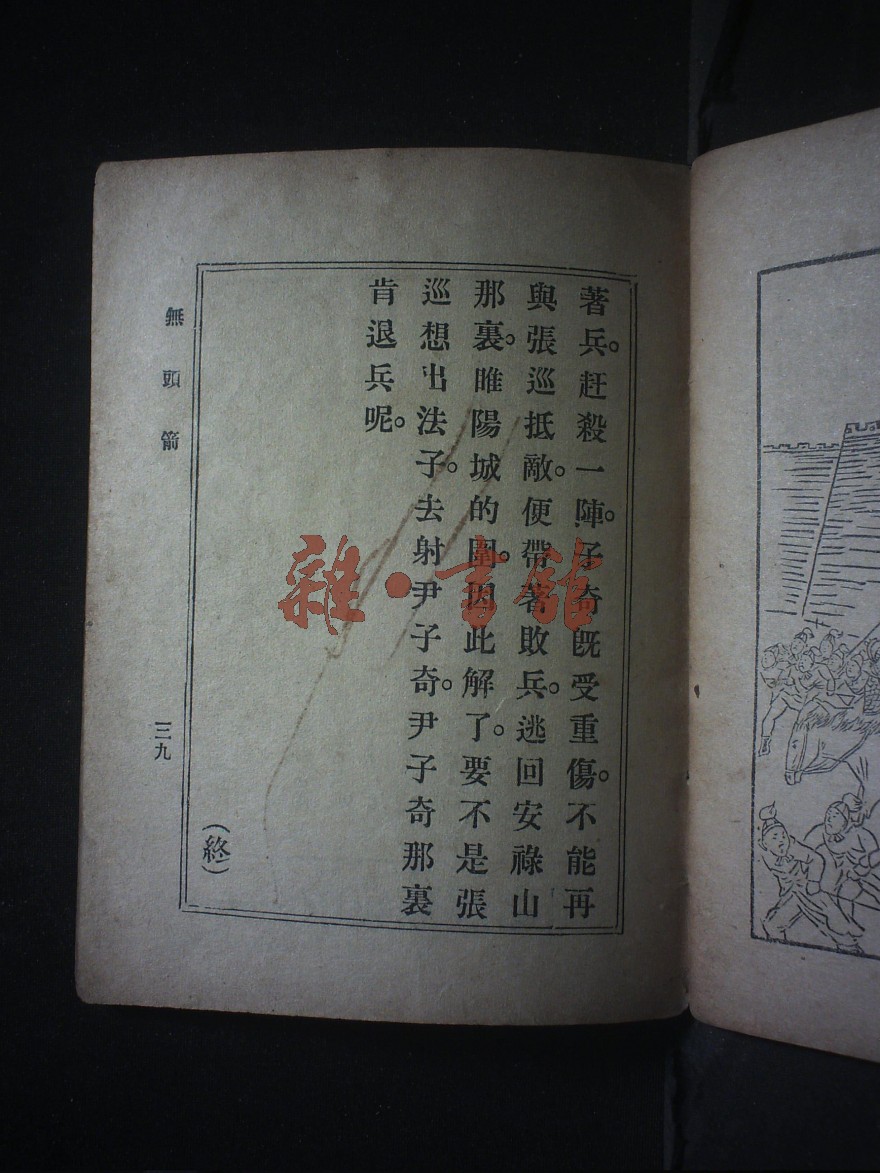 著兵。趕殺一陣。子奇既受重傷。不能再
與張巡抵敵。便帶著敗兵。逃回安祿山
那裏。睢陽城的圍。因此解了。要不是張
巡想出法子。去射尹子奇。尹子奇那裏
肯退兵呢。
(終)
無頭箭
三九
雜·書館